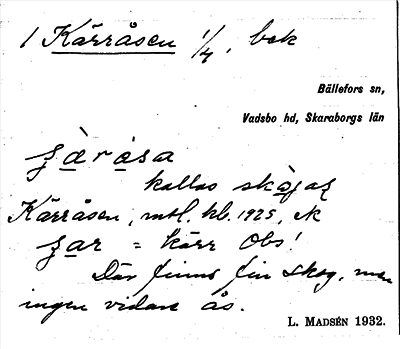 1 Kärråsen 1/4, bek
Bällefors sn,
Vadsbo hd, Skaraborgs län
kallas
Kärråsen, mtl. kb. 1925, ek
= kärr Obs!
Där finns fin skog, men
ingen vidare ås.
L. MADSÉN 1932.